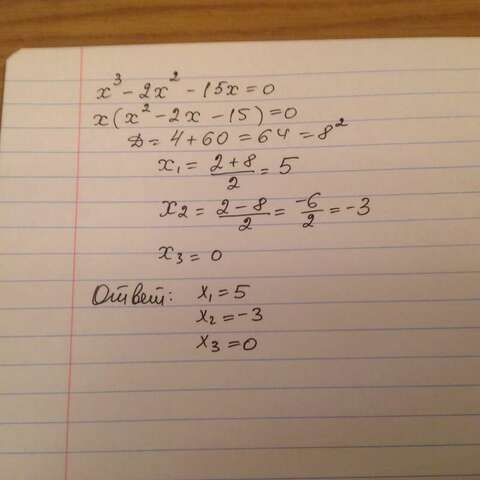 x³ - 2x² - 15x = 0
x(x² - 2x - 15) = 0
D = 4 + 60 = 64 = 8²
x₁ = (2+8)/2 = 5
x₂ = (2-8)/2 = -6/2 = -3
x₃ = 0
Ответ: x₁ = 5
x₂ = -3
x₃ = 0